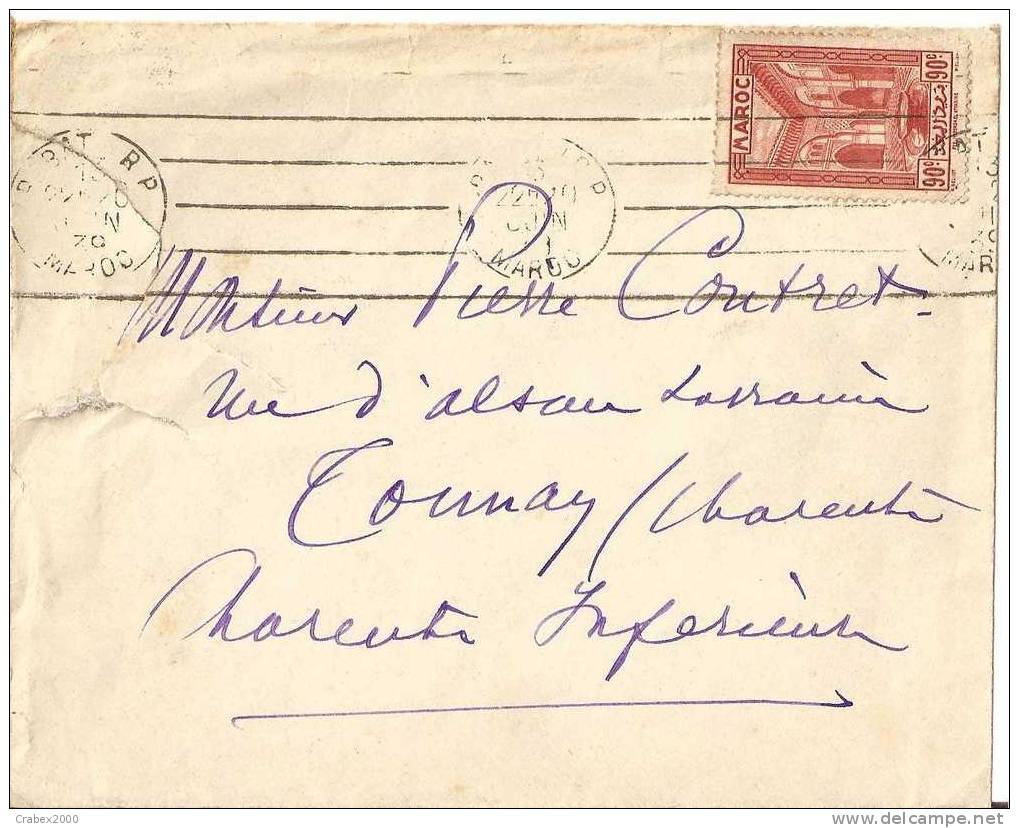 MAROC
90c 90c
RP
JUIN
39
MAROC
22
JUIN
MAROC
MAR
Monsieur Pierre Contret
rue d'alsace Lorraine
Tonnay / Charente
Charente Inférieure
Crabex2000